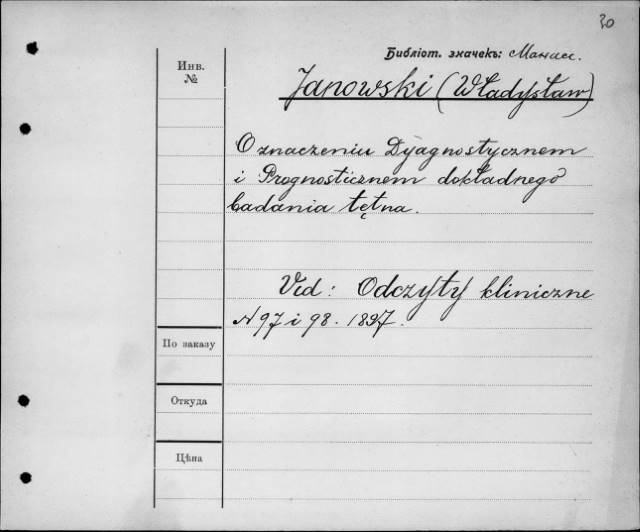 30
Библіот. значекъ: Манасс.
Инв.
№
Janowski (Władysław)
O znaczeniu Dyagnostycznem
i Prognosticznem dokładnego
badania tętna.
Vid: Odczyty kliniczne
N 97 i 98. 1897.
По заказу
Откуда
Цѣна